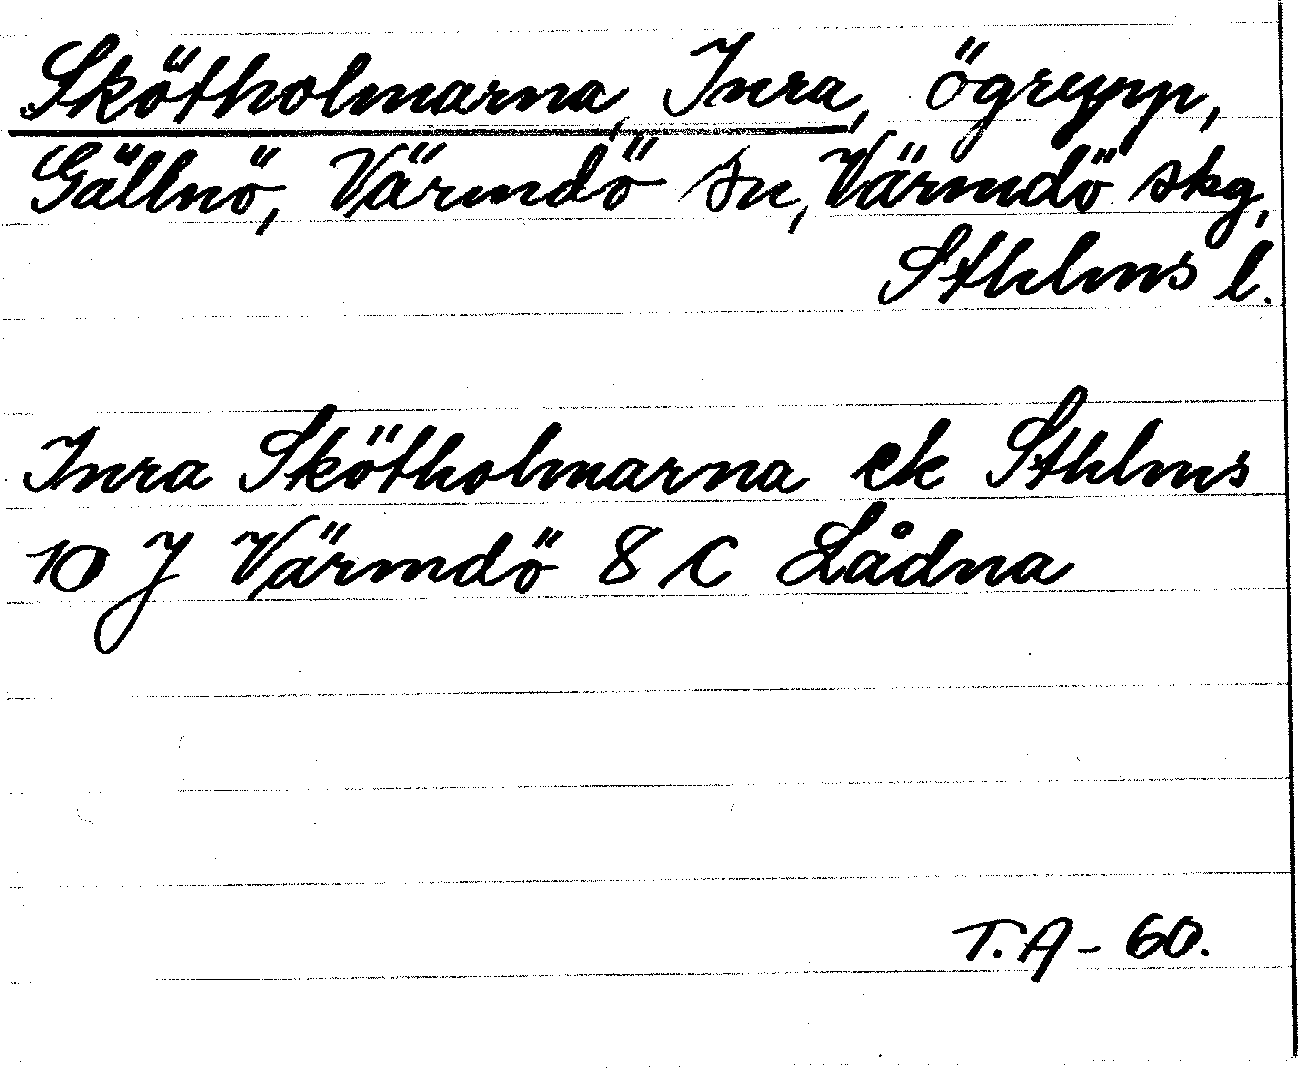 Skötholmarna, Inra, ögrupp,
Gällnö, Värmdö sn, Värmdö skg,
Sthlms l.
Inra Skötholmarna ek Sthlms
10 J Värmdö 8 C Lådna
T.A - 60.